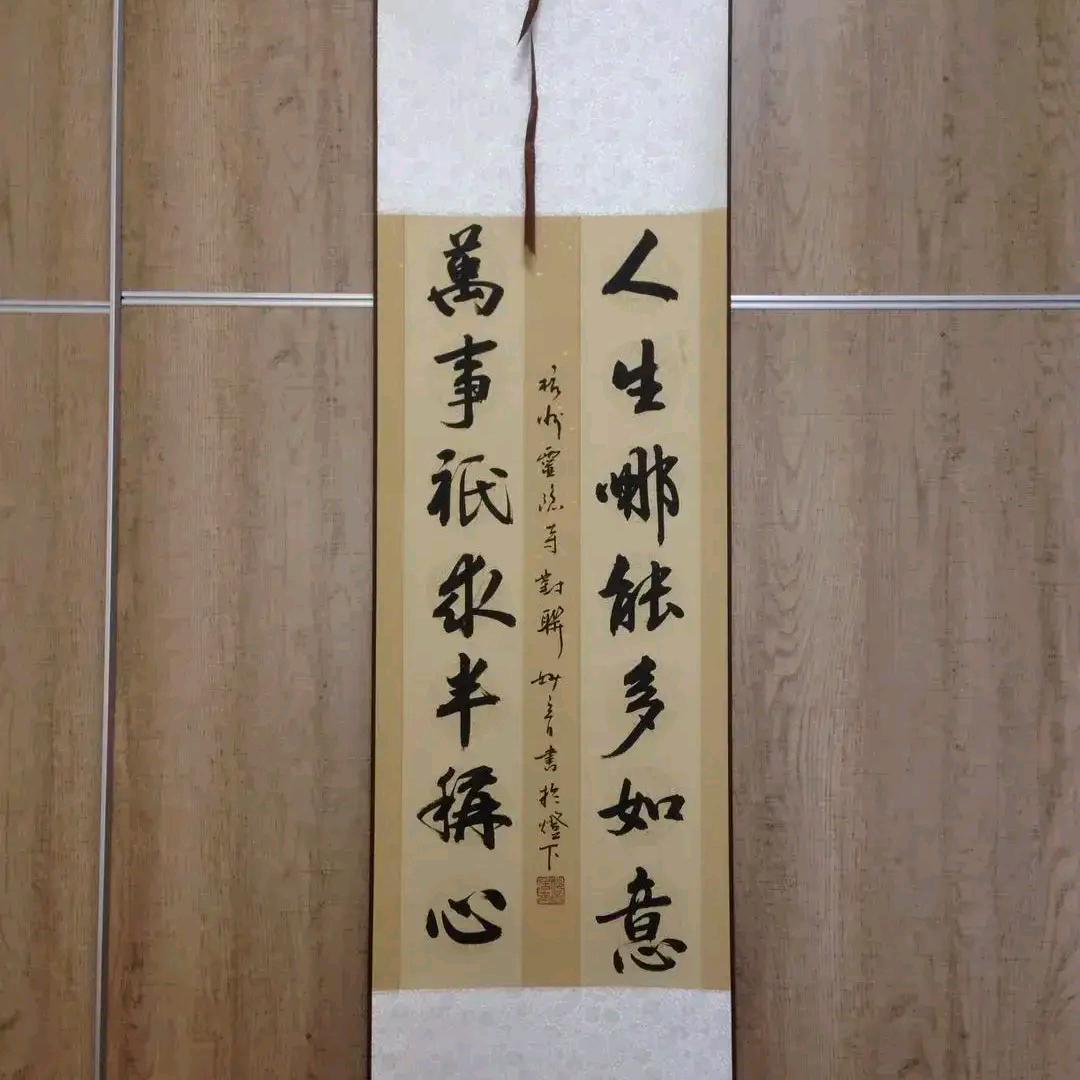 人生哪能多如意
萬事祇求半稱心
杭州靈隱寺對聯 妙音書於燈下